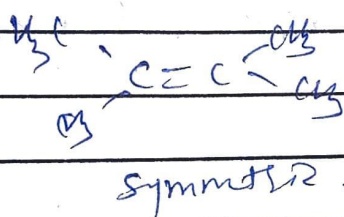 H₃C CH₃
C = C
CH₃ CH₃
symmetric